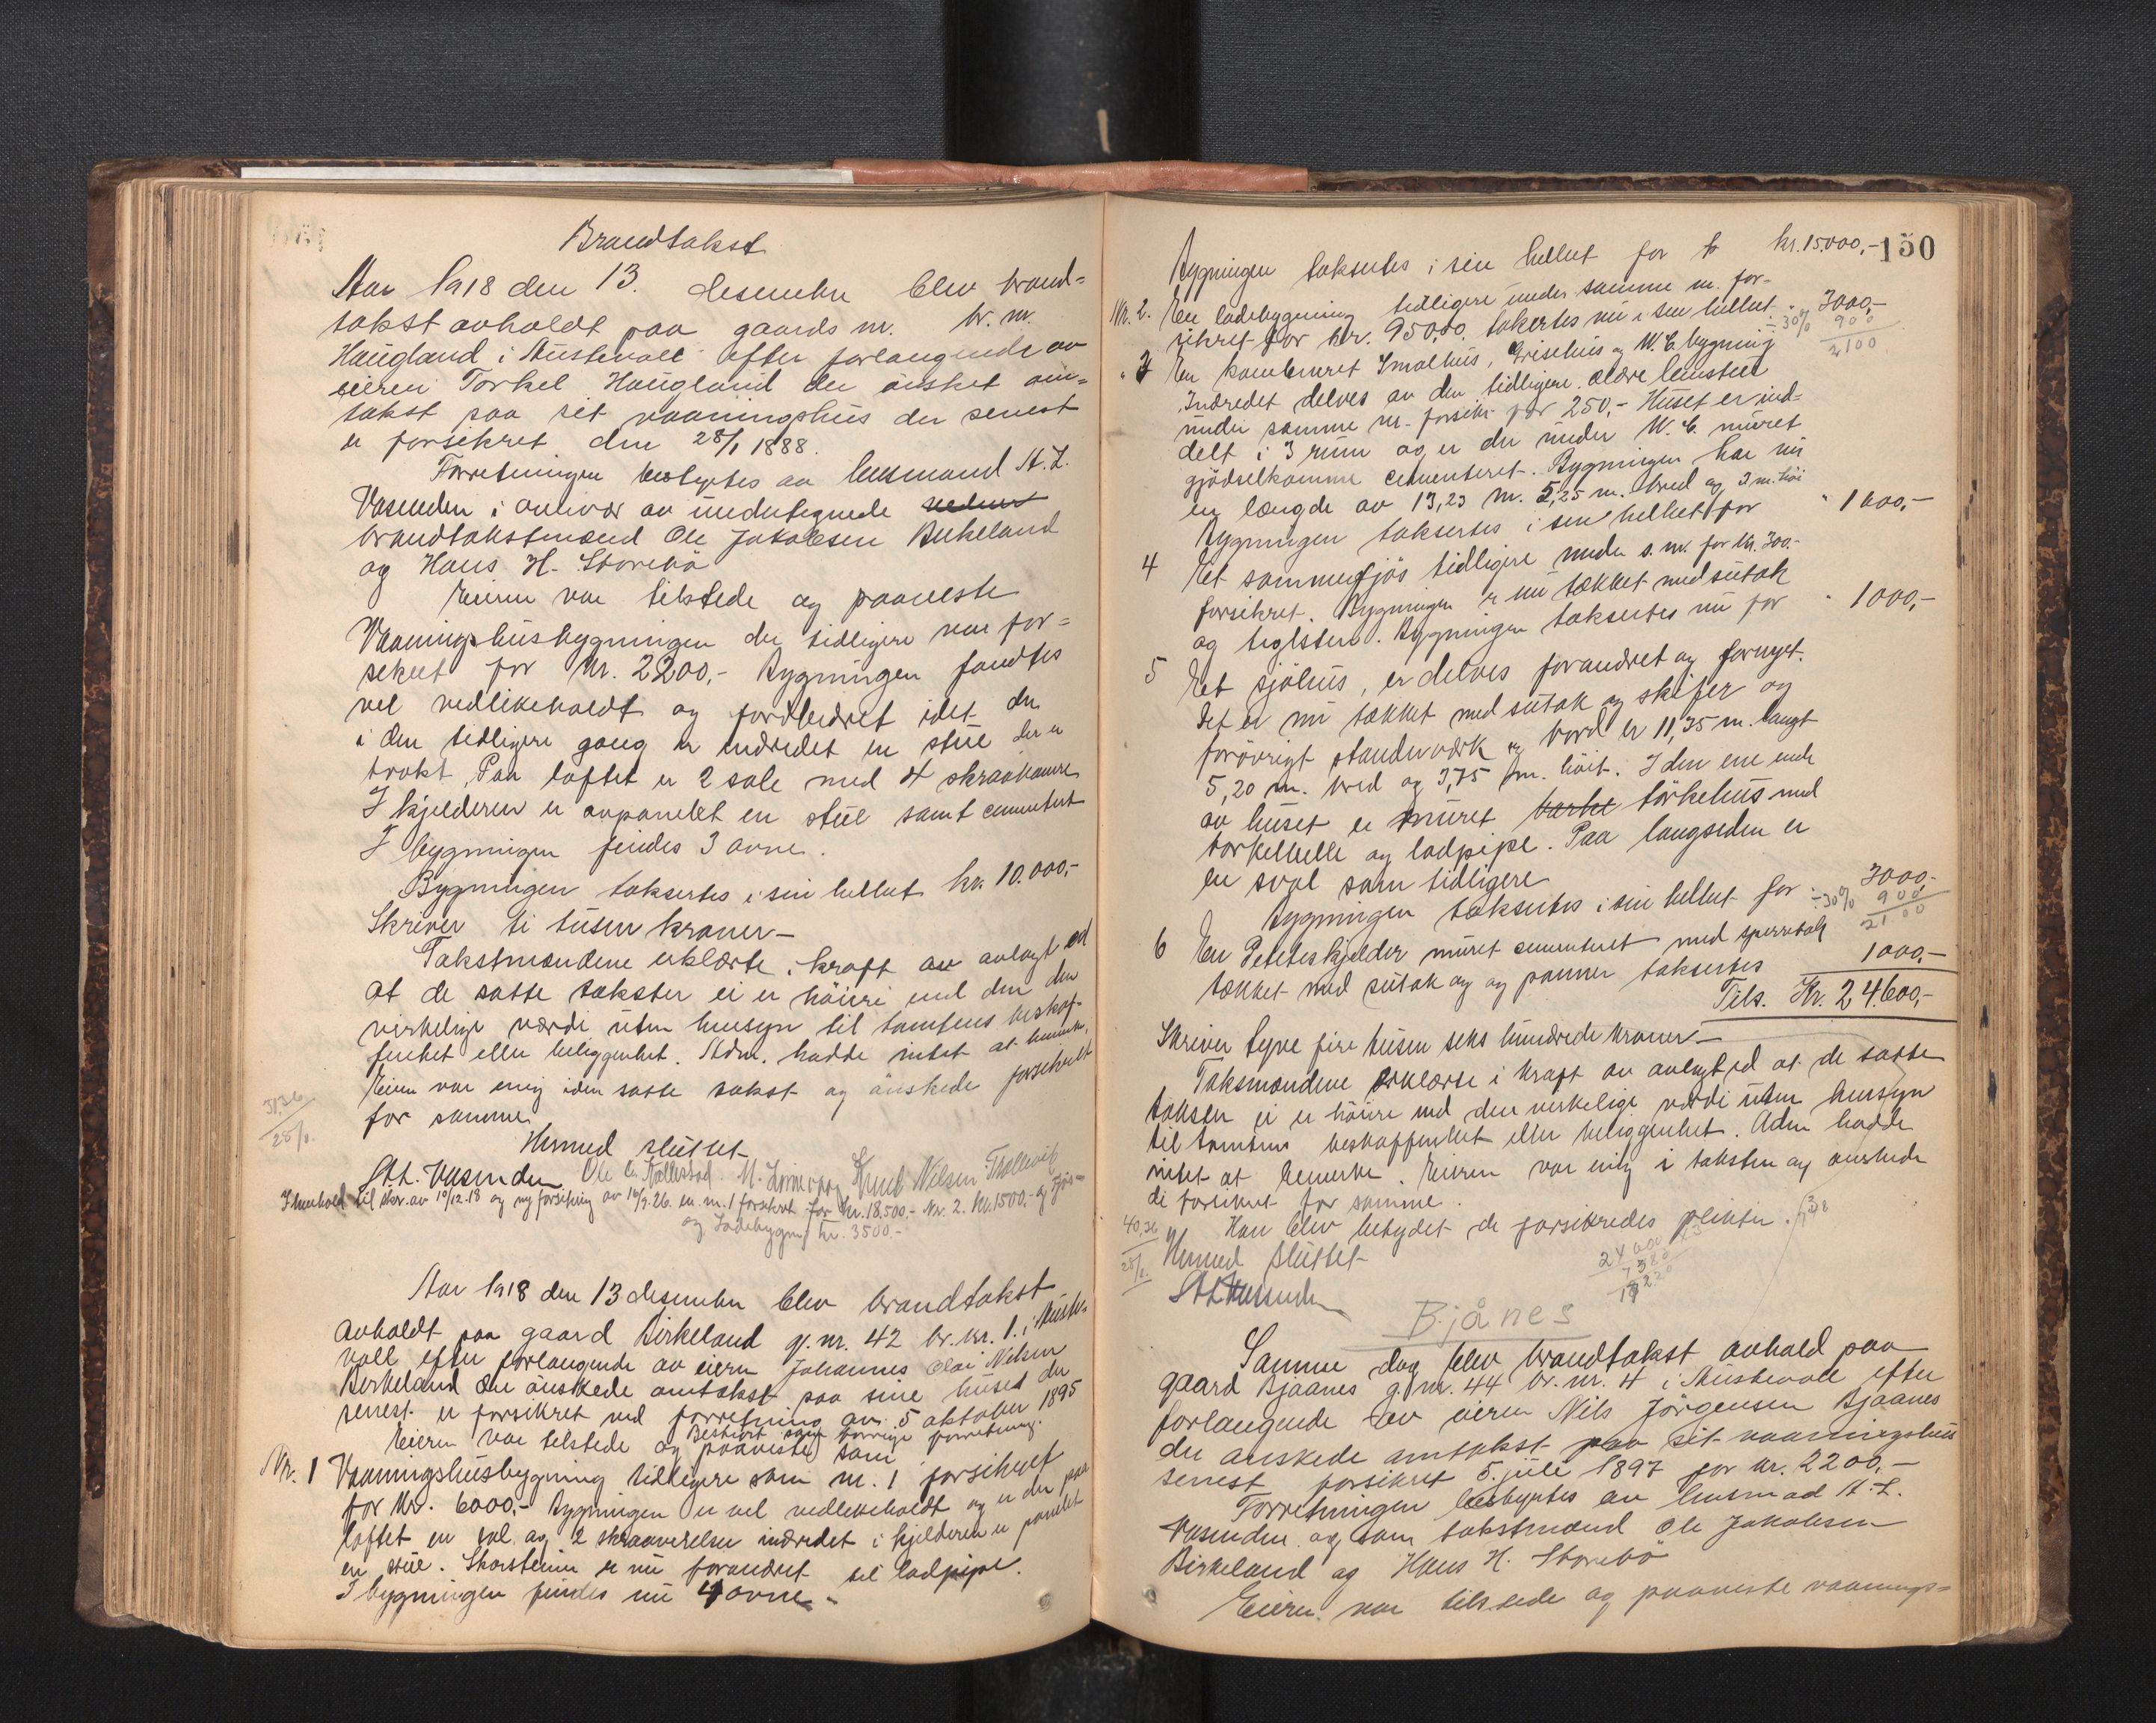 Brandtakst
Aar 1918 den 13. desember blev brand=
takst avholdt paa gaards nr. br. nr.
Haugland i Austevoll efter forlangende av
eieren Torkel Haugland der ønsket om=
takst paa sit vaaningshus der senest
er forsikret den 28/1 1888.
Forretningen bestyrtes av lensmand A. L.
Vasenden i overvær av undertegnede
brandtakstmænd Ole Jakobsen Birkeland
og Hans H. Storebø
Eieren var tilstede og paaviste
Vaaningshusbygningen der tidligere var for=
sikret for Kr. 2200,- Bygningen fandtes
vel vedlikeholdt og fordbedret idet der
i den tidligere gang er indredet en stue der er
trokt. Paa loftet er 2 sale med 4 skraakamre
I kjelderen er avpanelet en stue samt cementert
I bygningen findes 3 ovne.
Bygningen taksertes i sin helhet kr. 10.000,-
Skriver ti tusen kroner –
Takstmændene erklærte i kraft av avlagt ed
at de satte takster ei er høiere end den den
virkelige værdi uten hensyn til tomtens beskaf-
fenhet eller beliggenhet. Adm. hadde intet at bemerke.
Eieren var enig i den satte takst og ønskede forsikret
for samme.
Hermed sluttet
A.L. Vasenden Ole C. Kollestad M. Knud Nilsen
I henhold til skr. av 10/12.18 og ny forsikring av 10/9.26. er nr. 1 forsikret for kr. 18,500,- Nr. 2. kr. 1500.- og Fjøs=
og Ladebygn. kr. 3500.-
Aar 1918 den 13 desember blev brandtakst
avholdt paa gaard Birkeland g. nr. 42 br. nr. 1. i Auste-
voll efter forlangende av eieren Johannes Olai Nilsen
Birkeland der ønskede omtakst paa sine huser der
senest er forsikret ved forretning av 5 oktober 1895
Bestyrt som forrige forretning.
Eieren var tilstede og paaviste som
Nr. 1 Vaaningshusbygning tidligere som nr. 1 forsikret
for kr. 6000,- Bygningen er vel vedlikeholdt og er der paa
loftet en sal og 2 skraaverelser indredet i kjelderen er panelet
en stue. Skorstenen er nu forandret til ladpipe.
I bygningen findes nu 4 ovne –
150
Bygningen taksertes i sin helhet for kr. 15.000,-
Nr. 2. En ladebygning tidligere under samme nr. for-
sikret for kr. 950,00. takertes nu i sin helhet. " 3000,-
÷ 30% 900
2100
" 3 En kombineret Smalhus, Grisehus og W.C. bygning
Indredet delves av den tidligere ældre
under samme nr. forsikr. for 250,- Huset er ind=
delt i 3 rum og er der under W.C. muret
gjødselkomme cementeret. Bygningen har nu
en længde av 13,23 m. 5,25 m. bred og 3 m. høi
Bygningen taksertes i sin helhet for " 1600,-
4 Et sommerfjøs tidligere under s. nr. for kr. 300.-
forsikret. Bygningen er nu tækket med sutak
og teglsten. Bygningen taksertes nu for " 1000,-
5 Et sjøhus, er delves forandret og fornyet.
Det er nu tækket med sutak og skifer og
forøvrigt standerværk og bord er 11,35 m. langt
5,20 m. bred og 3,75 m. høit. I den ene ende
av huset er muret tørkehus med
tørkehelle og ladpipe. Paa langseden er
en sval som tidligere
Bygningen taksertes i sin helhet for 3000,-
÷ 30% 900
2100
6 En Poteteskjelder muret cementeret med sperretak
tækket med sutak og og panner taksertes 1000,-
Tils. Kr. 24.600,-
Skriver tyve fire tusen seks hundrede kroner –
Taksmændene erklærte i kraft av avlagt ed at de satte
takser ei er høiere end den verkelige værdi uten hensyn
til tomtens beskaffenhet eller beliggenhet. Adm hadde
intet at bemerke. Eieren var enig i taksten og ønskede
de forsikret for samme.
Han blev betydet de forsikredes plikter.
Hermed sluttet
A L Vasenden
Bjånes
Samme dag blev brandtakst avhold paa
gaard Bjaanes g. nr. 44 br. nr. 4 i Austevoll efter
forlangende av eieren Nils Jørgensen Bjaanes
der ønskede omtakst paa sit vaaningshus
senest forsikret 5. juli 1897 for kr. 2200,-
Forretningen bestyrtes av lensmad A. L.
Vasenden og som takstmænd Ole Jakobsen
Birkeland og Hans H. Storebø
Eieren var tilstede og paaviste vaanings=